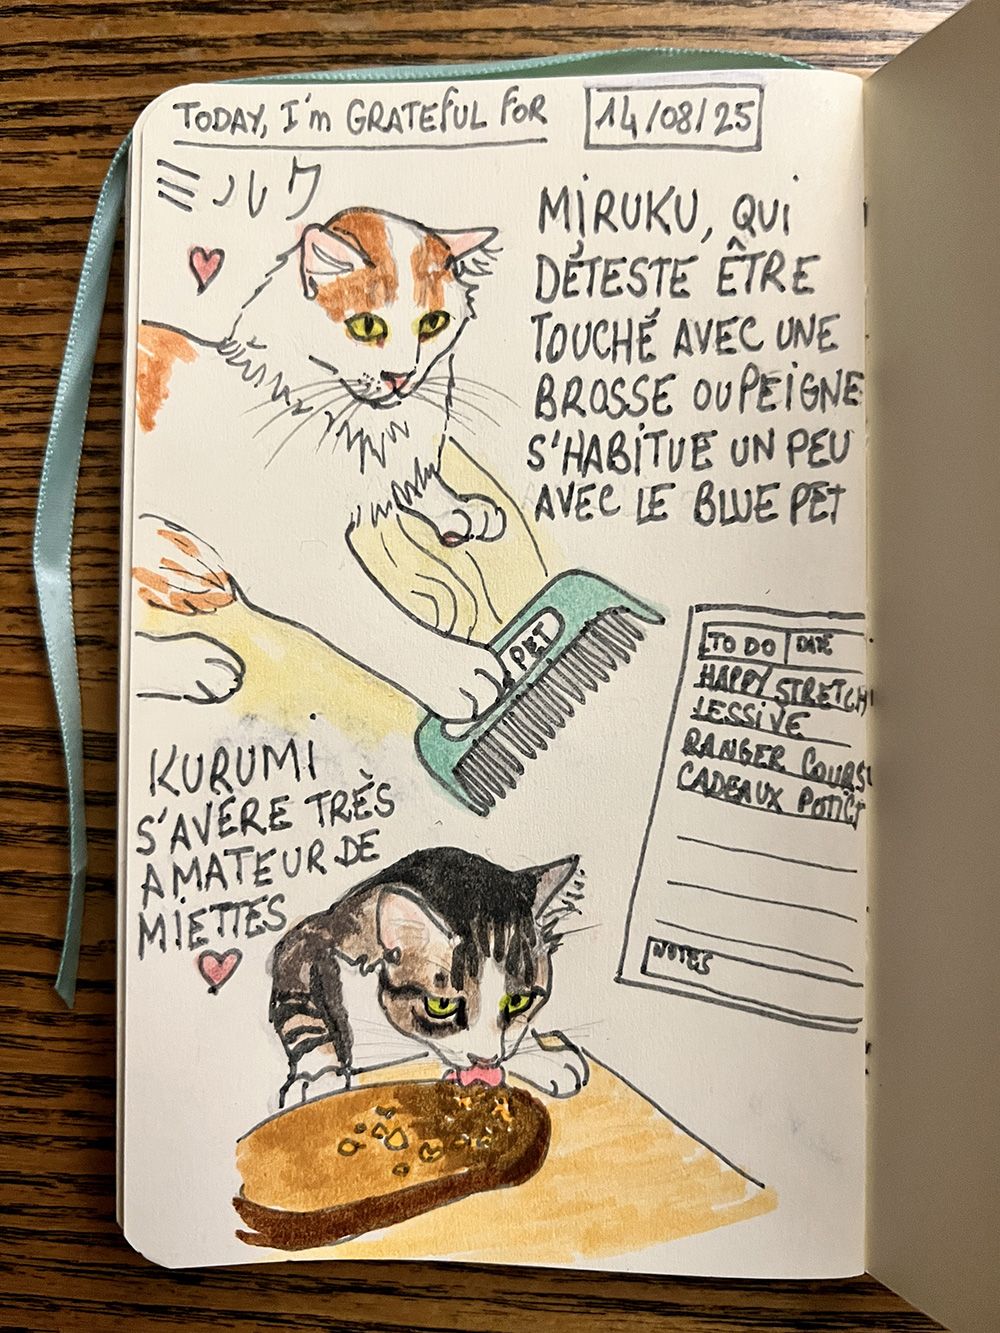 TODAY, I'm GRATEFUL FOR
14/08/25
ミルク
MIRUKU, QUI
DÉTESTE ÊTRE
TOUCHÉ AVEC UNE
BROSSE OU PEIGNE
S'HABITUE UN PEU
AVEC LE BLUE PET
PET
TO DO DATE
HAPPY STRETCH
LESSIVE
RANGER COURSES
CADEAUX
NOTES
KURUMI
S'AVÈRE TRÈS
AMATEUR DE
MIETTES